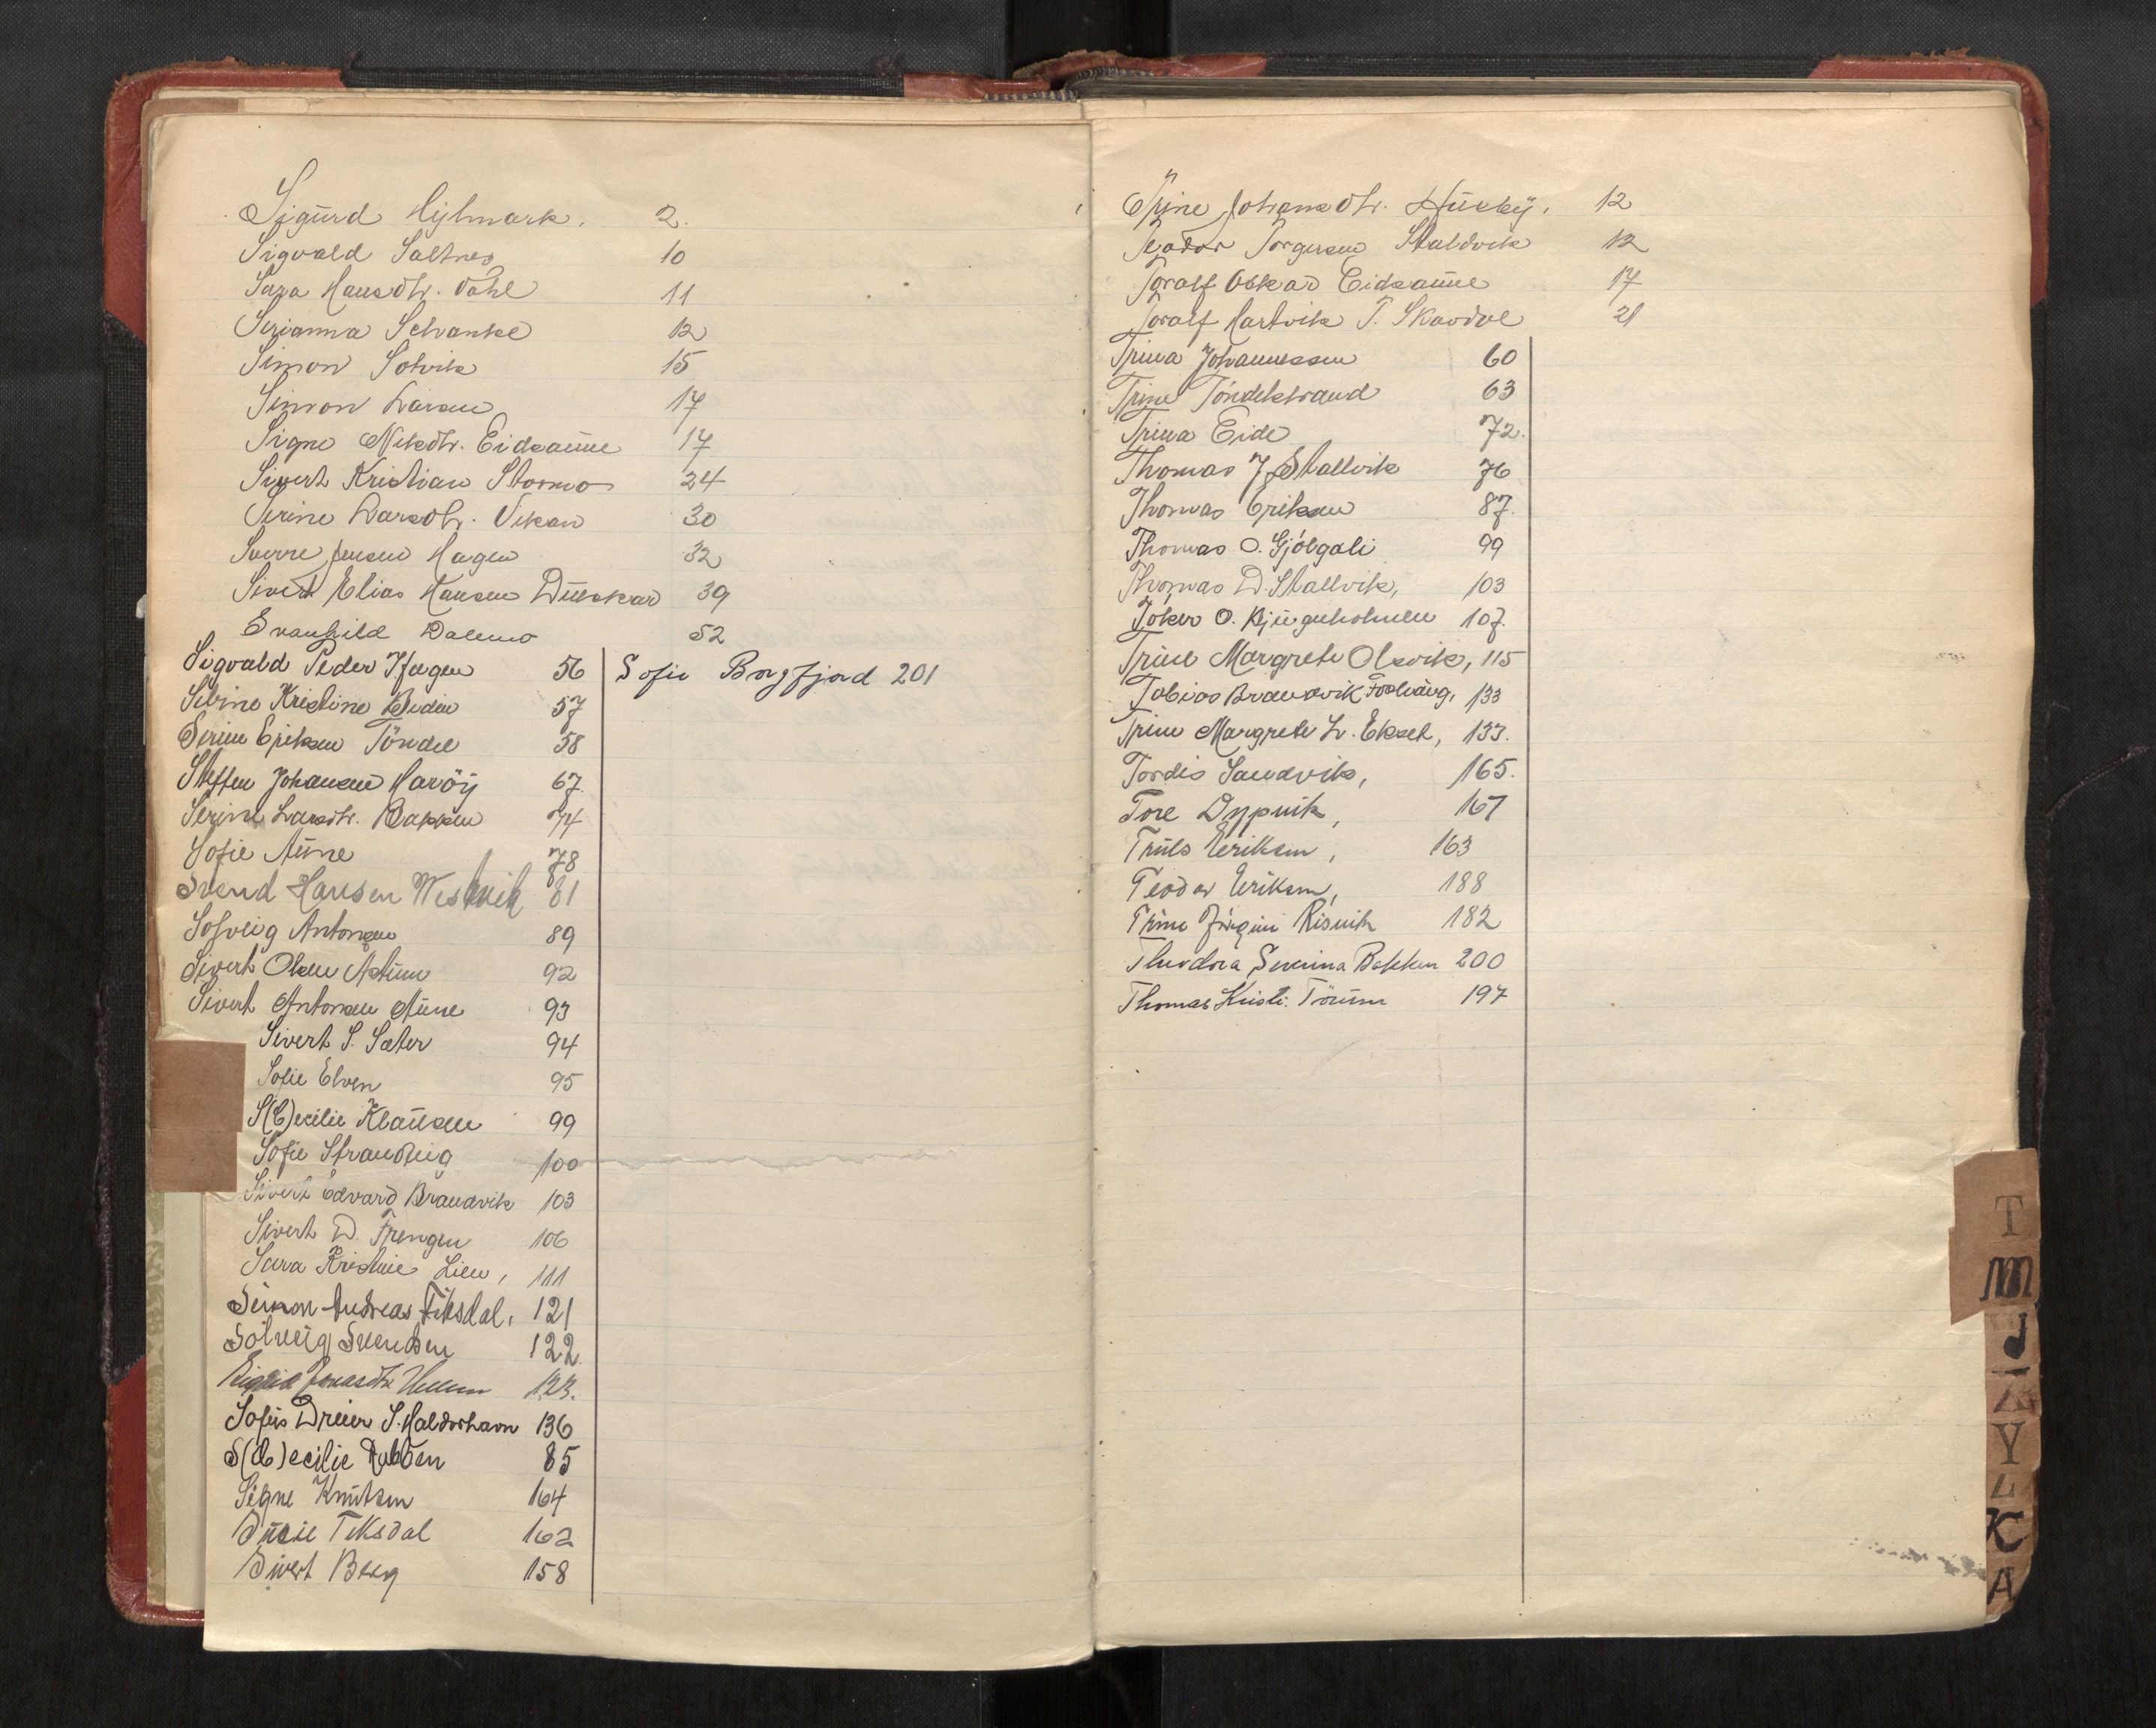 Sigurd Hjelmark. 2.
Sigvald Saltnes 10
Sara Hansdtr. Dahl 11
Serianna Schanke 12
Simon Solvik 15
Simon Larsen 17
Signe Nilsdtr. Eidsaune 17
Sivert Kristian Stormo 24
Serine Larsdtr. Vikan 30
Sverre Jensen Hagen 32
Sivert Elias Hansen 39
Svanhild Dalemo 52
Sigvald Peder Hagen 56
Sofie Borgfjord 201
Kristine 57
Serine Eriksen Töndel 58
Steffen Johansen Haröy 67
Serine Larsdtr. Bakken 74
Sofie Aune 78
Svend Hansen Westvik 81
Solveig Antonsen 89
Sivert Olsen 92
Sivert Antonsen Aune 93
Sivert S. Sæter 94
Sofie Elven 95
S(C)ecilie Klausen 99
Sofie 100
Sivert Edvard Brandvik 103
Sivert D. Frengen 106
Sara Kristine Lien, 111
Simon Andreas Tiksdal, 121
Solveig Svendsen 122.
Sigrid Jonasdtr 123.
Sofus Dreier S. Haldorhavn 136
S(C)ecilie 85
Signe Knutsen 164
Susie Teksdal 162
Sivert Berg 158
Trine Johansdtr. Husby, 12
Teodor Torgersen Staldvik 12
Toralf Oskar Eidsaune 17
Toralf Hartvik T. Skavdal 21
Trina Johannessen 60
Trine Töndelstrand 63
Trina Eide 72.
Thomas J. Stallvik 76
Thomas Eriksen 87.
Thomas O. Gjölgali 99
Thomas D. Stallvik, 103
O. 107.
Trine Margrete Olsvik, 115
Tobias Brandvik 133
Trine Margrete L. Ekset, 133.
Tordis Sandvik, 165.
Tore Dypvik, 167
Truls Eriksen, 163
Teodor Eriksen, 188
Trine Jörgine Risvik 182
Theodora Severina Bakken 200
Thomas Kristi. 197
T
M
J
Y
L
K
A